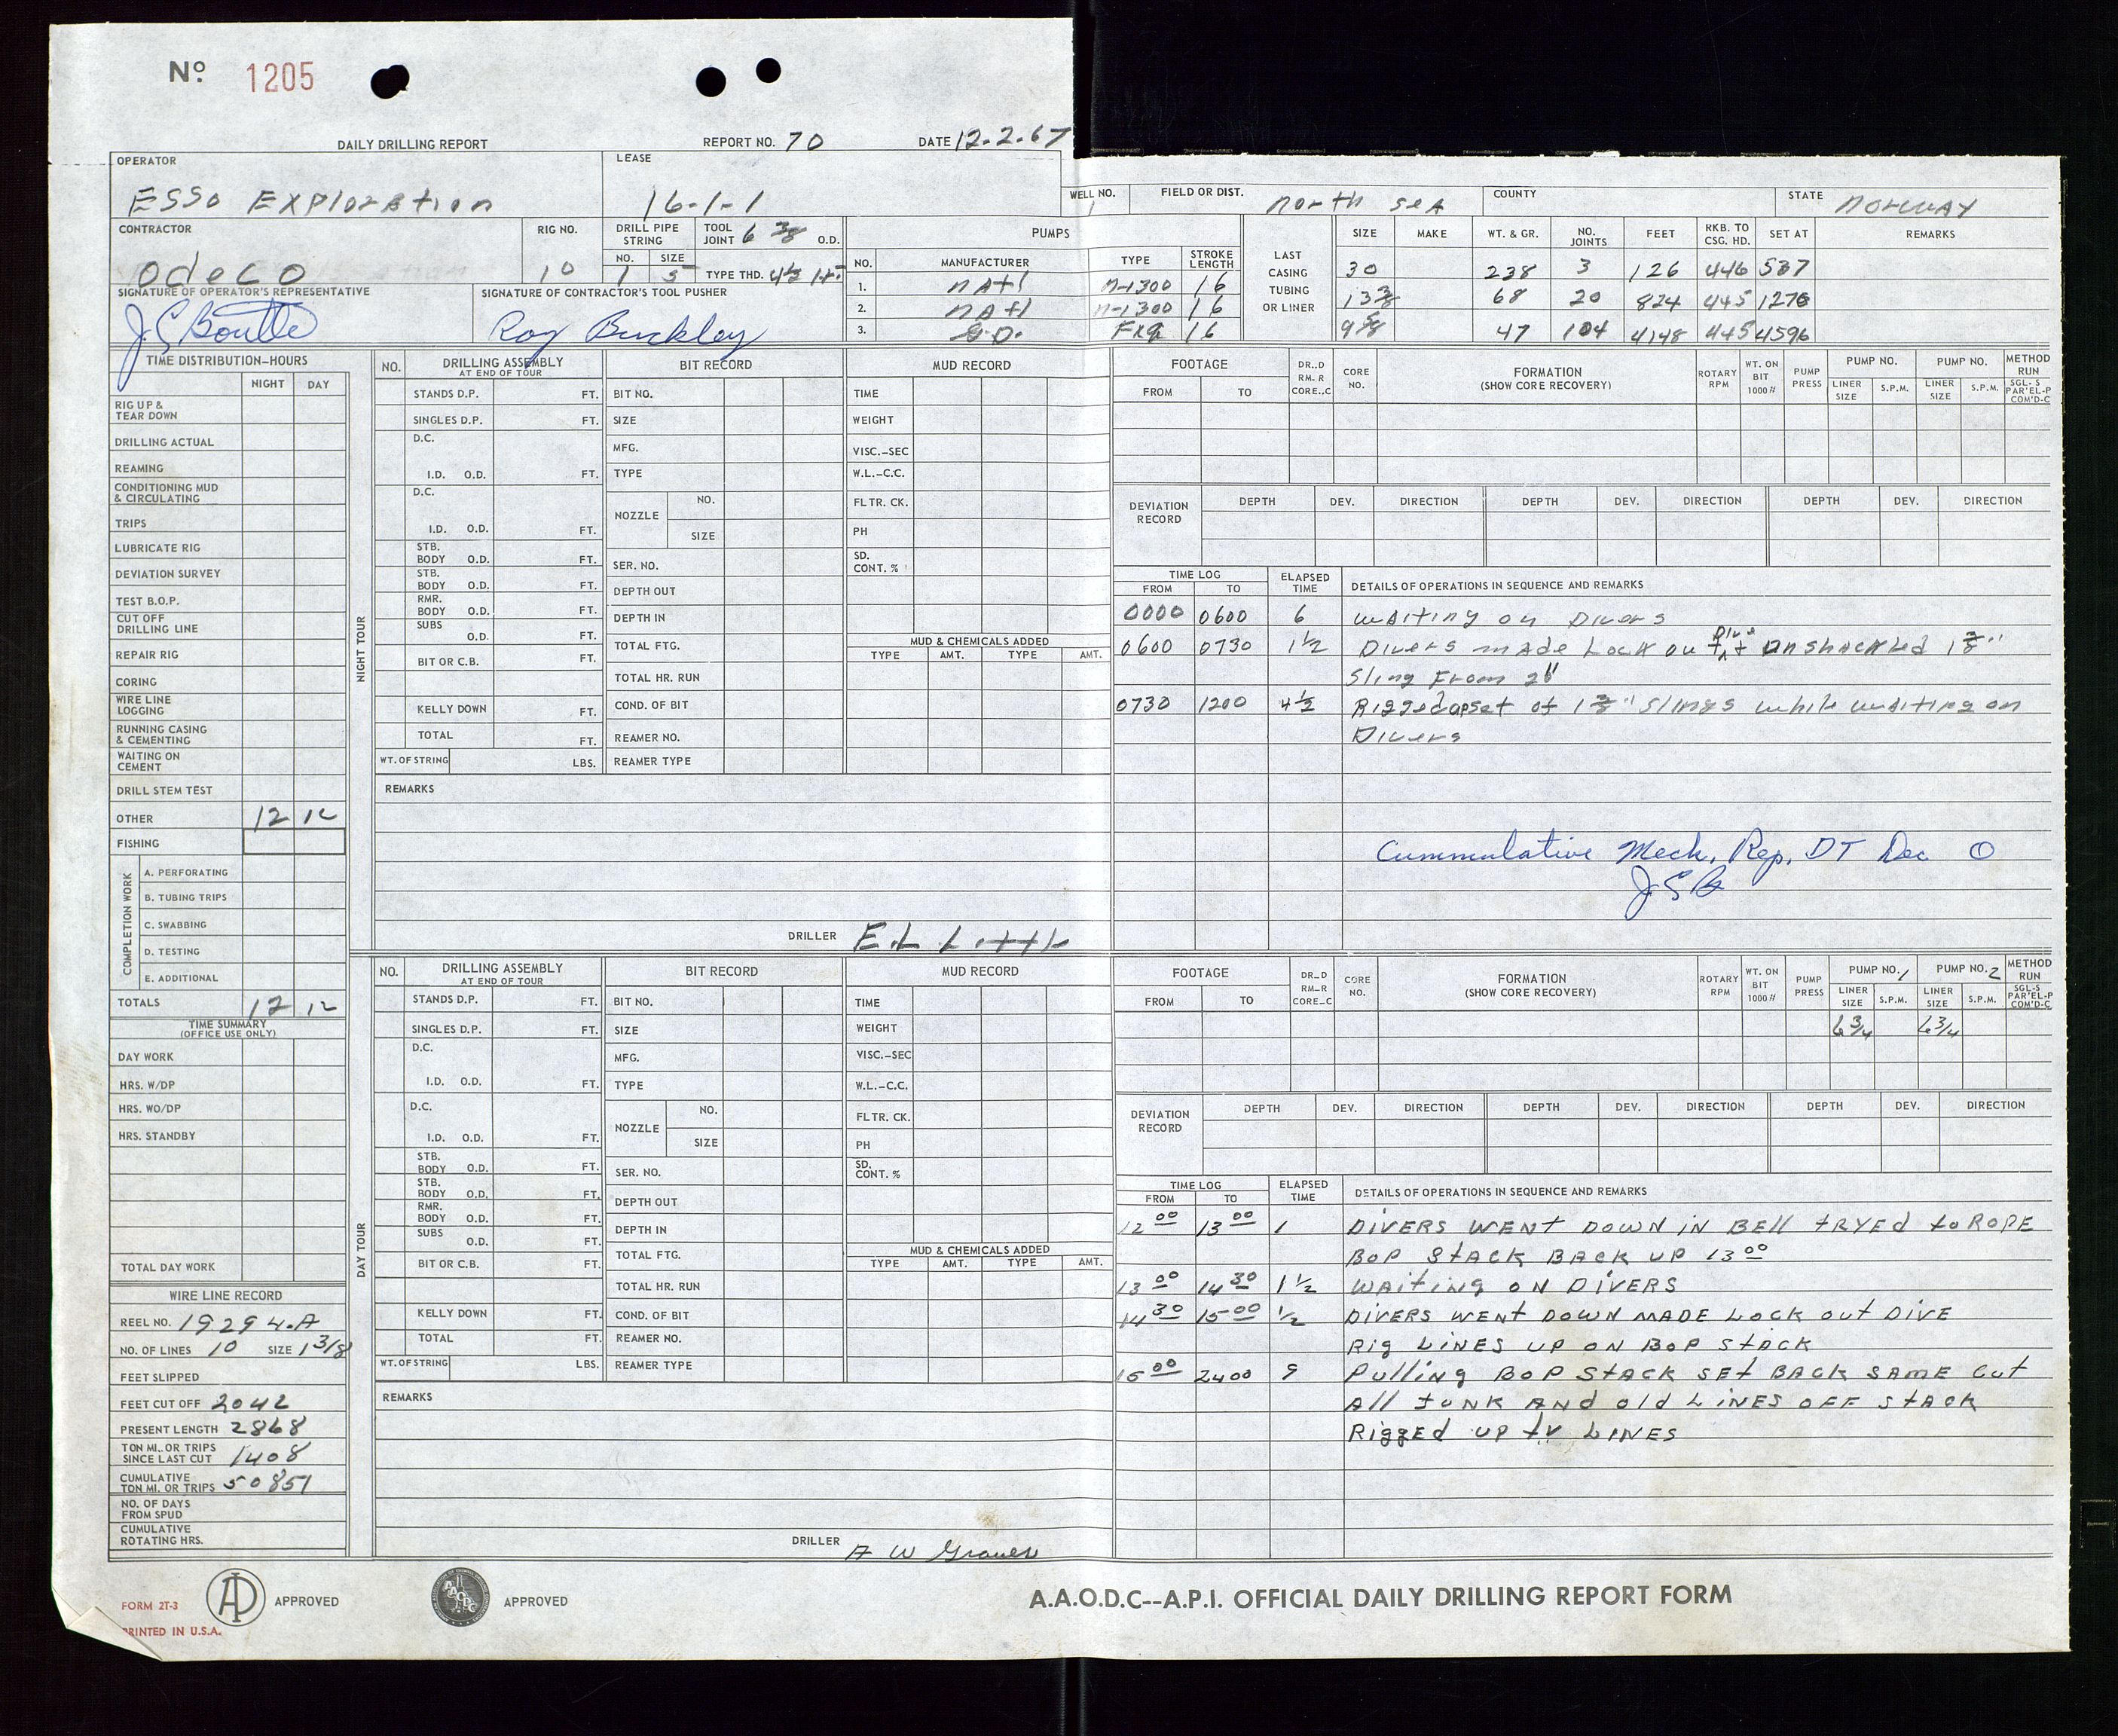 Nº 1205
DAILY DRILLING REPORT REPORT NO. 70 DATE 12-2-67
OPERATOR LEASE
ESSO EXPLORATION 16-1-1
WELL NO. 1 FIELD OR DIST. NORTH SEA COUNTY STATE NORWAY
CONTRACTOR RIG NO. DRILL PIPE STRING TOOL JOINT 6 3/8 O.D. PUMPS
Odeco 10 NO. 1 SIZE 5 TYPE THD. 4½
SIGNATURE OF OPERATOR'S REPRESENTATIVE SIGNATURE OF CONTRACTOR'S TOOL PUSHER
J.E. Boutte Roy Buckley
NO. MANUFACTURER TYPE STROKE LENGTH
1. Natl N-1300 16
2. Natl N-1300 16
3. G.D. FXQ 16
LAST CASING TUBING OR LINER SIZE MAKE WT. & GR. NO. JOINTS FEET RKB. TO CSG. HD. SET AT REMARKS
30 238 3 126 446 537
13 3/8 68 20 824 445 1276
9 5/8 47 104 4148 445 4596
TIME DISTRIBUTION-HOURS
NIGHT DAY
RIG UP & TEAR DOWN
DRILLING ACTUAL
REAMING
CONDITIONING MUD & CIRCULATING
TRIPS
LUBRICATE RIG
DEVIATION SURVEY
TEST B.O.P.
CUT OFF DRILLING LINE
REPAIR RIG
CORING
WIRE LINE LOGGING
RUNNING CASING & CEMENTING
WAITING ON CEMENT
DRILL STEM TEST
OTHER 12 12
FISHING
COMPLETION WORK
A. PERFORATING
B. TUBING TRIPS
C. SWABBING
D. TESTING
E. ADDITIONAL
TOTALS 12 12
TIME SUMMARY
(OFFICE USE ONLY)
DAY WORK
HRS. W/DP
HRS. WO/DP
HRS. STANDBY
TOTAL DAY WORK
WIRE LINE RECORD
REEL NO. 19294.A
NO. OF LINES 10 SIZE 1 3/8
FEET SLIPPED
FEET CUT OFF 2042
PRESENT LENGTH 2868
TON MI. OR TRIPS SINCE LAST CUT 1408
CUMULATIVE TON MI. OR TRIPS 50851
NO. OF DAYS FROM SPUD
CUMULATIVE ROTATING HRS.
NIGHT TOUR
NO. DRILLING ASSEMBLY AT END OF TOUR BIT RECORD MUD RECORD
STANDS D.P. FT. BIT NO. TIME
SINGLES D.P. FT. SIZE WEIGHT
D.C. MFG. VISC.-SEC
I.D. O.D. FT. TYPE W.L.-C.C.
D.C. NOZZLE NO. FLTR. CK.
I.D. O.D. FT. SIZE PH
STB. BODY O.D. FT. SER. NO. SD. CONT. %
STB. BODY O.D. FT. DEPTH OUT
RMR. BODY O.D. FT. DEPTH IN
SUBS O.D. FT. TOTAL FTG. MUD & CHEMICALS ADDED
BIT OR C.B. FT. TOTAL HR. RUN TYPE AMT. TYPE AMT.
KELLY DOWN FT. COND. OF BIT
TOTAL FT. REAMER NO.
WT. OF STRING LBS. REAMER TYPE
REMARKS
DRILLER E.L Little
FOOTAGE DR..D RM.-R CORE..C CORE NO. FORMATION (SHOW CORE RECOVERY) ROTARY RPM WT. ON BIT 1000# PUMP PRESS PUMP NO. PUMP NO. METHOD RUN
FROM TO LINER SIZE S.P.M. LINER SIZE S.P.M. SGL-S PAR'EL-P COM'D-C
DEVIATION RECORD DEPTH DEV. DIRECTION DEPTH DEV. DIRECTION DEPTH DEV. DIRECTION
TIME LOG ELAPSED TIME DETAILS OF OPERATIONS IN SEQUENCE AND REMARKS
FROM TO
0000 0600 6 waiting on Divers
0600 0730 1½ Divers made Lock out Dive unshackled 1 3/8"
Sling From 2"
0730 1200 4½ Rigged up set of 1 3/8" Slings while waiting on
Divers
Cummulative Mech. Rep. DT Dec. 0
JEB
DAY TOUR
NO. DRILLING ASSEMBLY AT END OF TOUR BIT RECORD MUD RECORD
STANDS D.P. FT. BIT NO. TIME
SINGLES D.P. FT. SIZE WEIGHT
D.C. MFG. VISC.-SEC
I.D. O.D. FT. TYPE W.L.-C.C.
D.C. NOZZLE NO. FLTR. CK.
I.D. O.D. FT. SIZE PH
STB. BODY O.D. FT. SER. NO. SD. CONT. %
STB. BODY O.D. FT. DEPTH OUT
RMR. BODY O.D. FT. DEPTH IN
SUBS O.D. FT. TOTAL FTG. MUD & CHEMICALS ADDED
BIT OR C.B. FT. TOTAL HR. RUN TYPE AMT. TYPE AMT.
KELLY DOWN FT. COND. OF BIT
TOTAL FT. REAMER NO.
WT. OF STRING LBS. REAMER TYPE
REMARKS
DRILLER A W Graves
FOOTAGE DR...D RM-R CORE...C CORE NO. FORMATION (SHOW CORE RECOVERY) ROTARY RPM WT. ON BIT 1000# PUMP PRESS PUMP NO. 1 PUMP NO. 2 METHOD RUN
FROM TO LINER SIZE S.P.M. LINER SIZE S.P.M. SGL-S PAR'EL-P COM'D-C
6 3/4 6 3/4
DEVIATION RECORD DEPTH DEV. DIRECTION DEPTH DEV. DIRECTION DEPTH DEV. DIRECTION
TIME LOG ELAPSED TIME DETAILS OF OPERATIONS IN SEQUENCE AND REMARKS
FROM TO
12 00 13 00 1 DIVERS WENT DOWN IN BELL TRYED to ROPE
BOP STACK BACK UP 13 00
13 00 14 30 1½ WAITING ON DIVERS
14 30 15 00 ½ DIVERS WENT DOWN MADE LOCK OUT DIVE
RIG LINES UP ON BOP STACK
15 00 2400 9 PULLING BOP STACK SET BACK SAME CUT
ALL JUNK AND OLD LINES OFF STACK
RIGGED UP TV LINES
FORM 2T-3 APPROVED APPROVED A.A.O.D.C--A.P.I. OFFICIAL DAILY DRILLING REPORT FORM
PRINTED IN U.S.A.